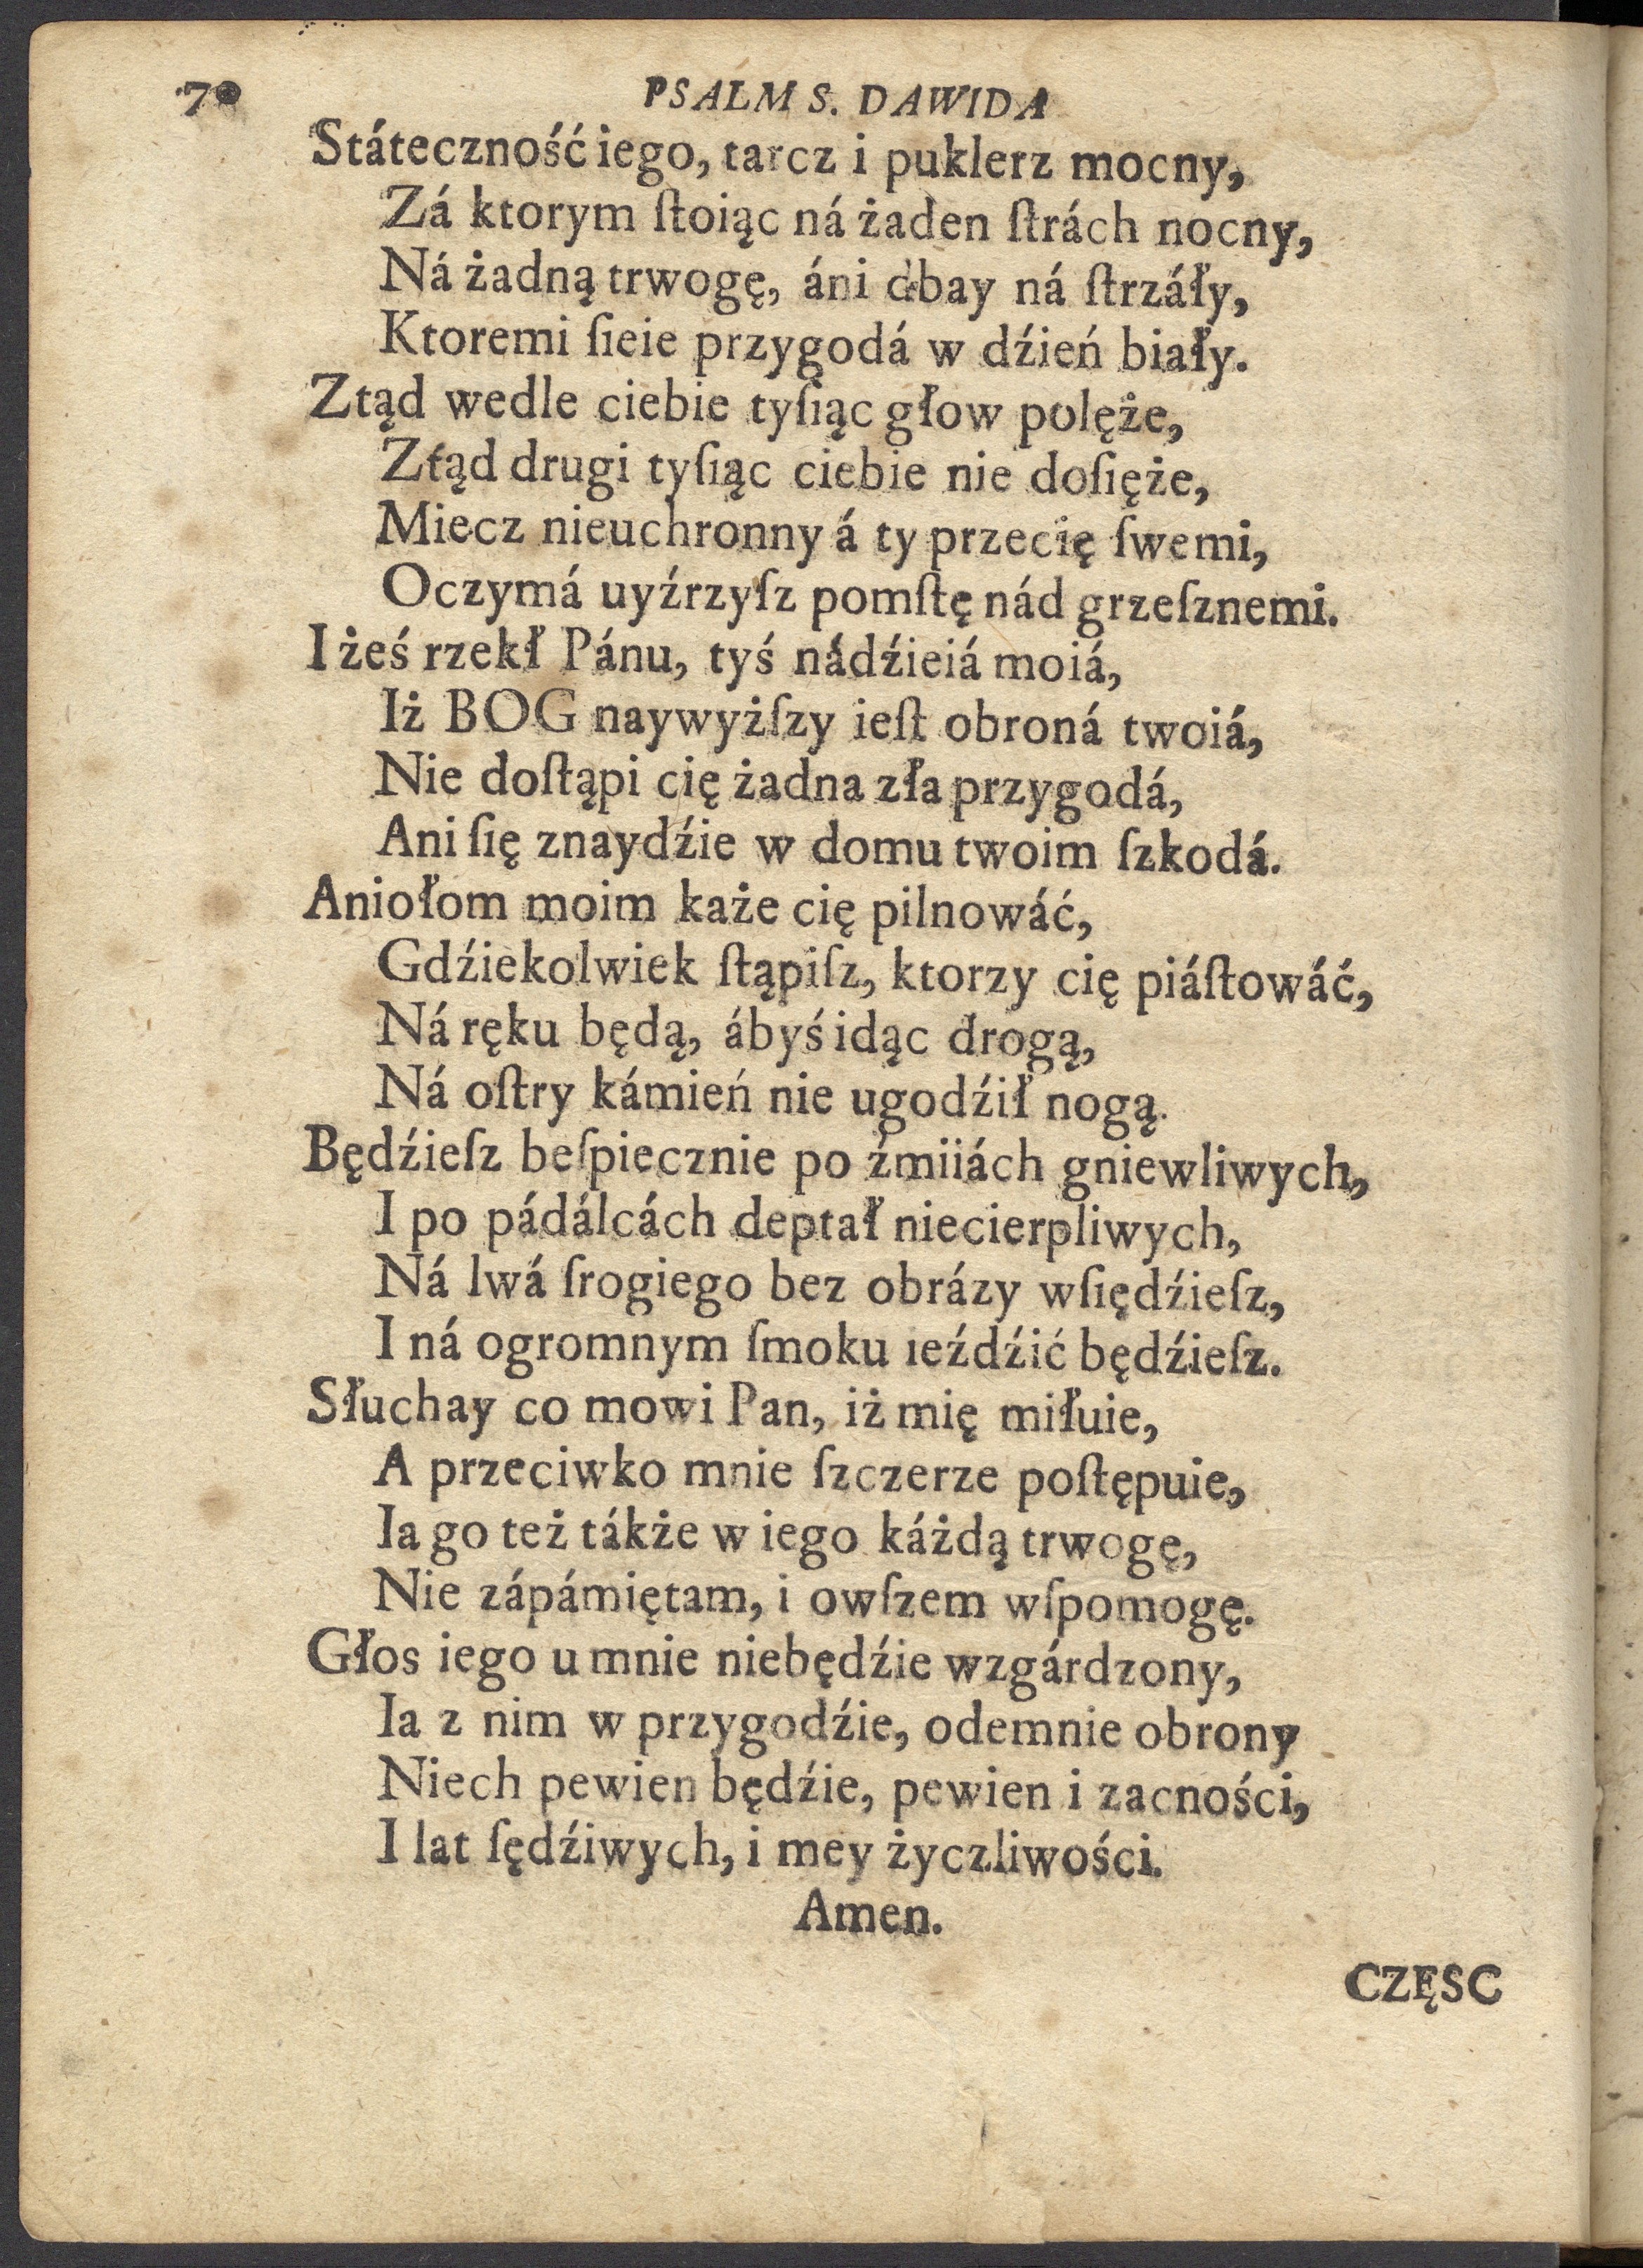 70
PSALM S. DAWIDA
Státeczność iego, tarcz i puklerz mocny,
Zá ktorym ſtoiąc ná żaden ſtrách nocny,
Ná żadną trwogę, áni dbay ná ſtrzáły,
Ktoremi ſieie przygodá w dźień biały.
Ztąd wedle ciebie tyſiąc głow polęże,
Ztąd drugi tyſiąc ciebie nie doſięże,
Miecz nieuchronny á ty przecię ſwemi,
Oczymá uyźrzyſz pomſtę nád grzeſznemi.
I żeś rzekł Pánu, tyś nádźieiá moiá,
Iż BOG naywyżſzy ieſt obroná twoiá,
Nie doſtąpi cię żadna zła przygodá,
Ani ſię znaydźie w domu twoim ſzkodá.
Aniołom moim każe cię pilnowáć,
Gdźiekolwiek ſtąpiſz, ktorzy cię piáſtowáć,
Ná ręku będą, ábyś idąc drogą,
Ná oſtry kámień nie ugodźił nogą.
Będźieſz beſpiecznie po źmiiách gniewliwych,
I po pádálcách deptał niecierpliwych,
Ná lwá ſrogiego bez obrázy wſiędźieſz,
I ná ogromnym ſmoku ieźdźić będźieſz.
Słuchay co mowi Pan, iż mię miłuie,
A przeciwko mnie ſzczerze poſtępuie,
Ia go też tákże w iego káżdą trwogę,
Nie zápámiętam, i owſzem wſpomogę.
Głos iego u mnie niebędźie wzgárdzony,
Ia z nim w przygodźie, odemnie obrony
Niech pewien będźie, pewien i zacności,
I lat ſędźiwych, i mey życzliwości.
Amen.
CZĘSC